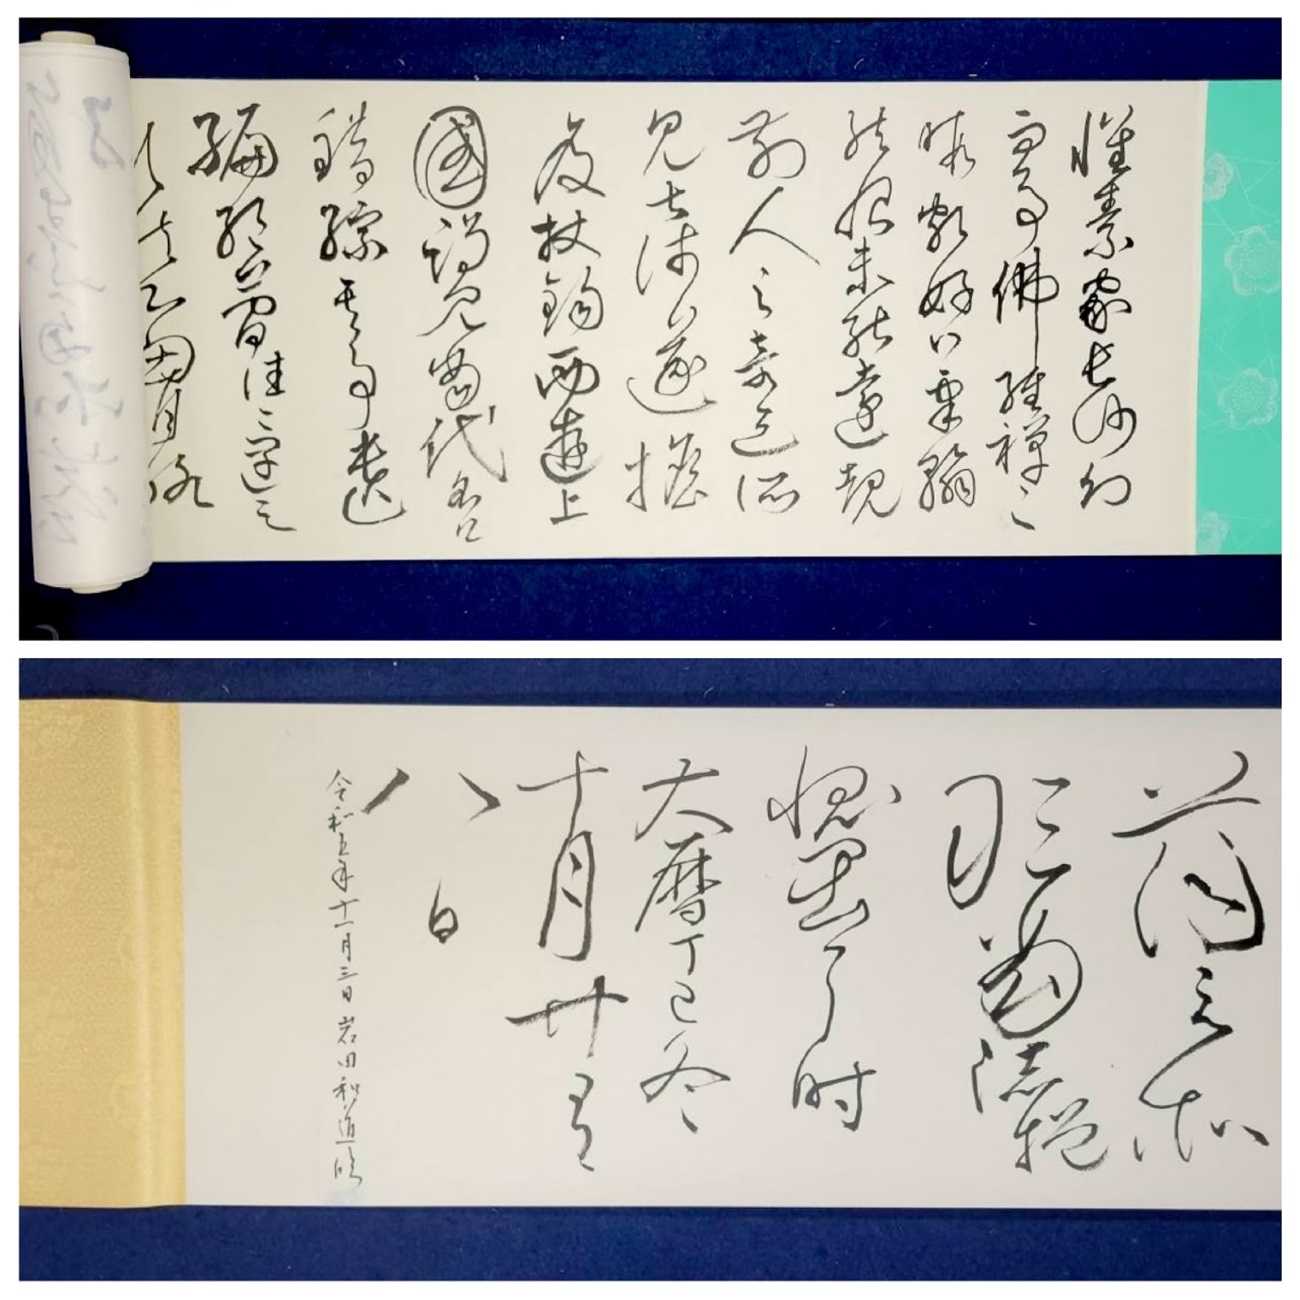 懷素家長沙幼
而事佛經禪之
暇頗好筆翰
然恨未能遠覩
前人之奇迹所
見甚淺遂擔
笈杖錫西遊上
國謁見當代名公
錯綜其事遺
編絶簡往々遇之
然心胸略
薄之所
敢當徒增
愧畏耳時
大曆丁巳冬
十月廿有
八日
令和五年十一月三日 岩田 道臨